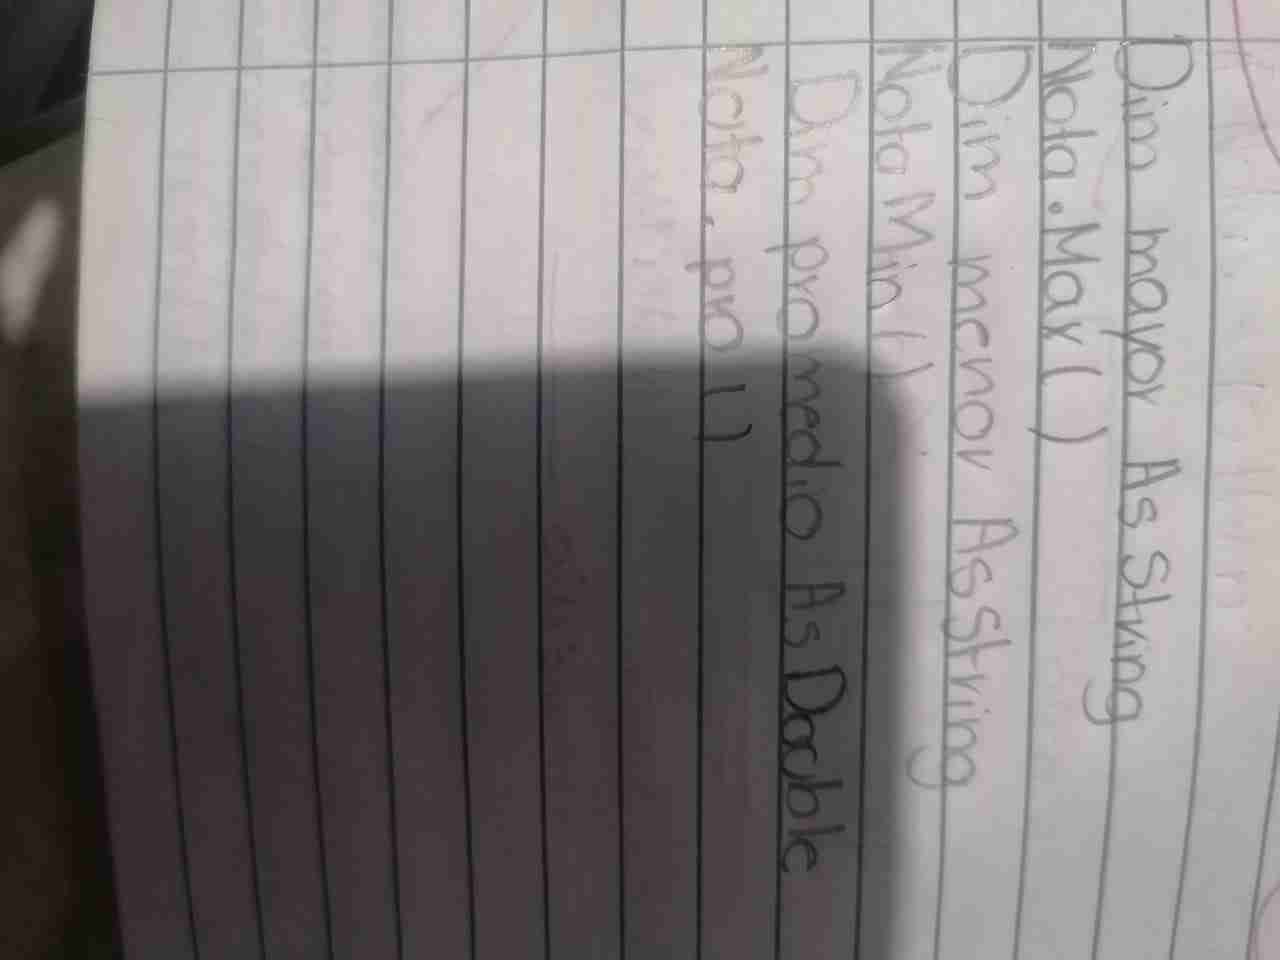 Dim mayor As String
Nota.Max()
Dim menor As String
Nota Min()
Dim promedio As Double
Nota.pro()